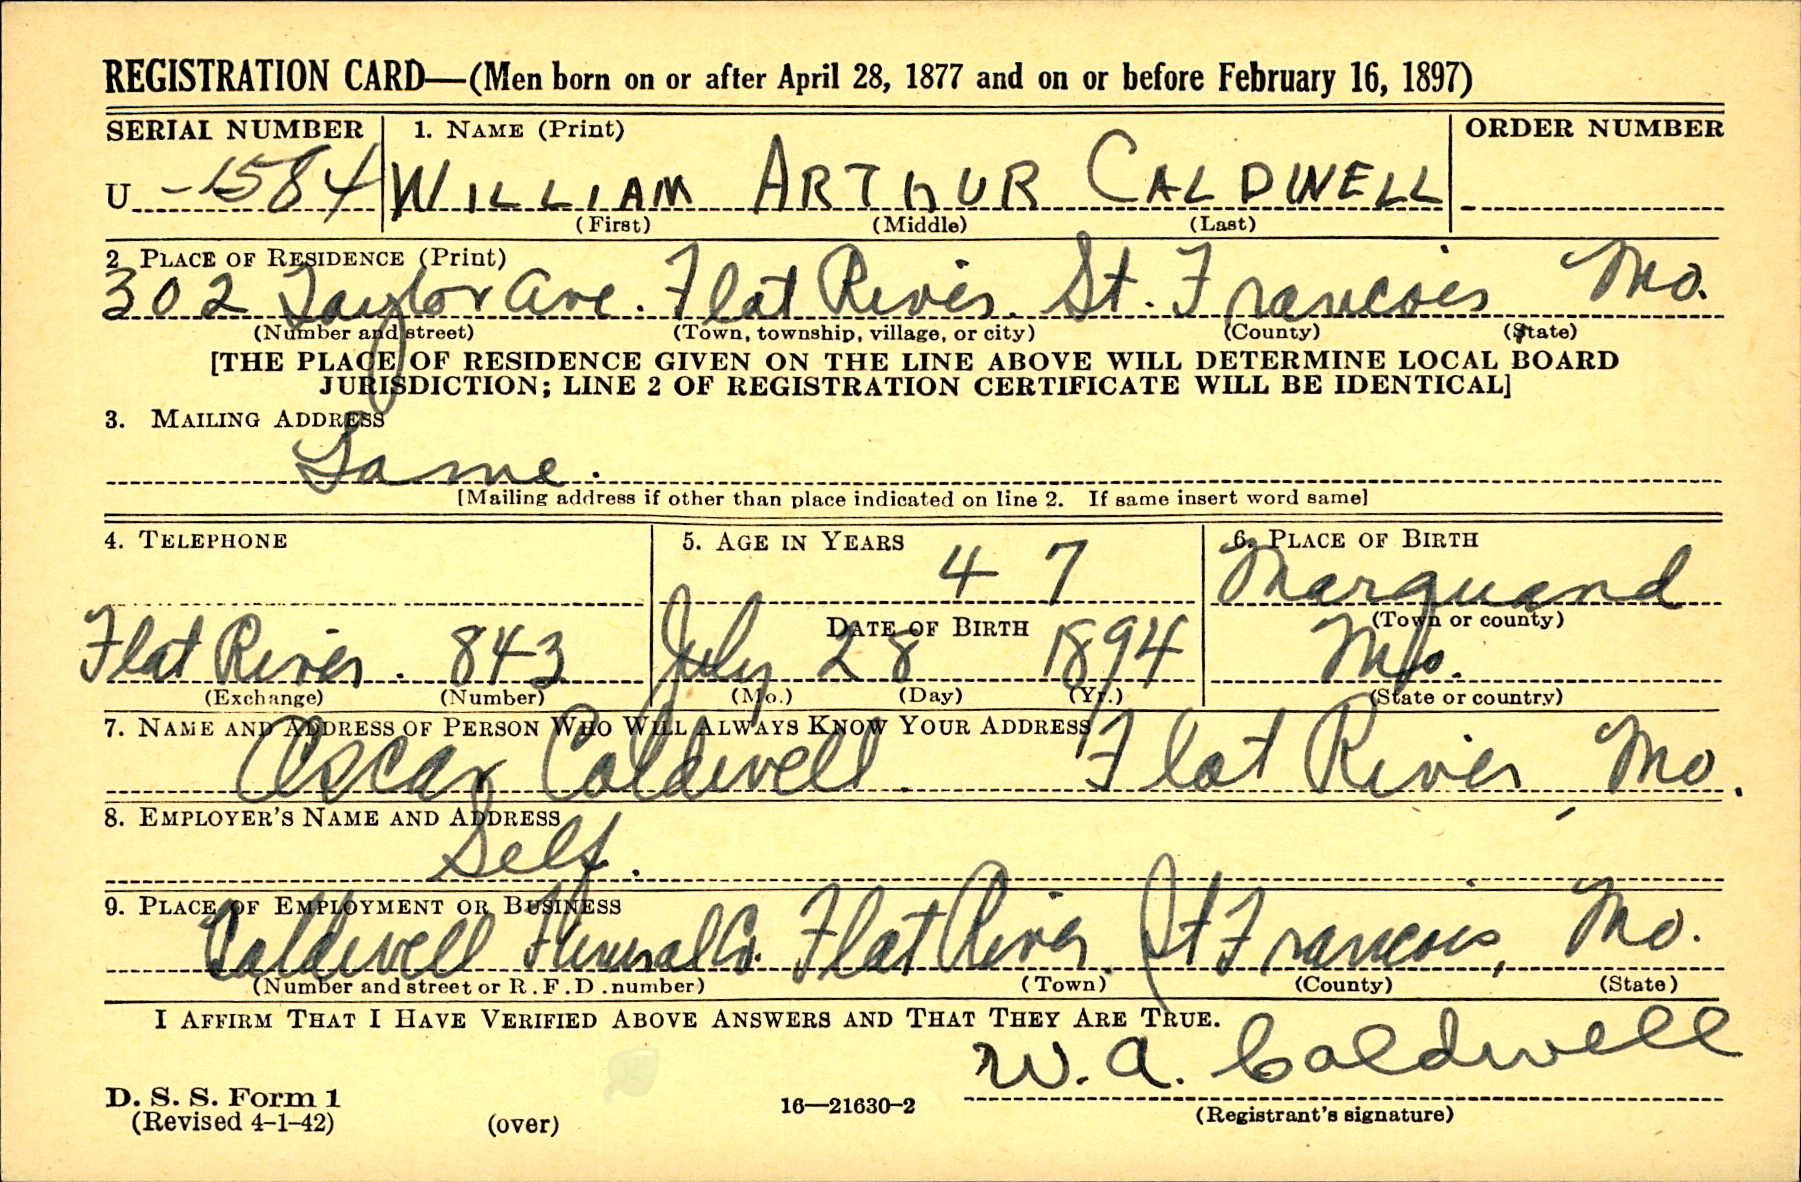 REGISTRATION CARD—(Men born on or after April 28, 1877 and on or before February 16, 1897)
SERIAL NUMBER 1. NAME (Print) ORDER NUMBER
U -1584 WILLIAM ARTHUR CALDWELL
(First) (Middle) (Last)
2 PLACE OF RESIDENCE (Print)
302 Taylor Ave. Flat River. St. Francois Mo.
(Number and street) (Town, township, village, or city) (County) (State)
[THE PLACE OF RESIDENCE GIVEN ON THE LINE ABOVE WILL DETERMINE LOCAL BOARD
JURISDICTION; LINE 2 OF REGISTRATION CERTIFICATE WILL BE IDENTICAL]
3. MAILING ADDRESS
Same.
[Mailing address if other than place indicated on line 2. If same insert word same]
4. TELEPHONE 5. AGE IN YEARS 6. PLACE OF BIRTH
47 Marquand
DATE OF BIRTH (Town or county)
Flat River. 843 July 28 1894 Mo.
(Exchange) (Number) (Mo.) (Day) (Yr.) (State or country)
7. NAME AND ADDRESS OF PERSON WHO WILL ALWAYS KNOW YOUR ADDRESS
Oscar Caldwell. Flat River, Mo.
8. EMPLOYER'S NAME AND ADDRESS
Self.
9. PLACE OF EMPLOYMENT OR BUSINESS
Caldwell Funeral Co. Flat River. St Francois, Mo.
(Number and street or R.F.D. number) (Town) (County) (State)
I AFFIRM THAT I HAVE VERIFIED ABOVE ANSWERS AND THAT THEY ARE TRUE.
W. A. Caldwell
D. S. S. Form 1
(Revised 4-1-42) (over) 16—21630-2 (Registrant's signature)